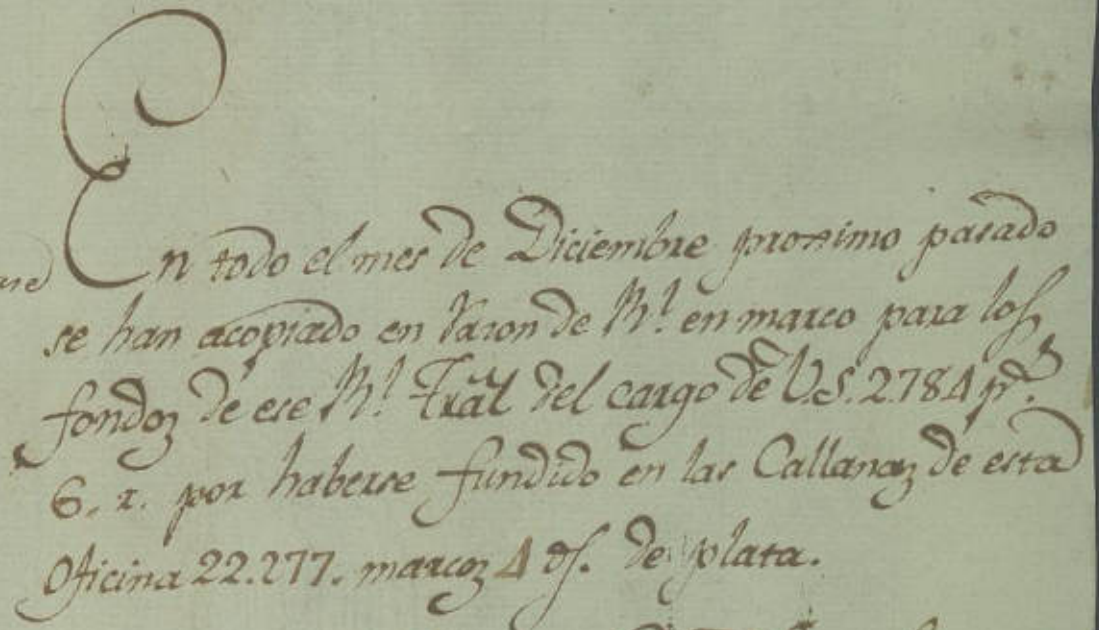 En todo el mes de Diciembre proximo pasado
se han acopiado en razon de Rl. en marco para los
fondoz de ese Rl. Tral del cargo de V.S. 2.784 ps.
6. r. por haberse fundido en las Callanaz de esta
Oficina 22.277. marcoz 4 os. de plata.